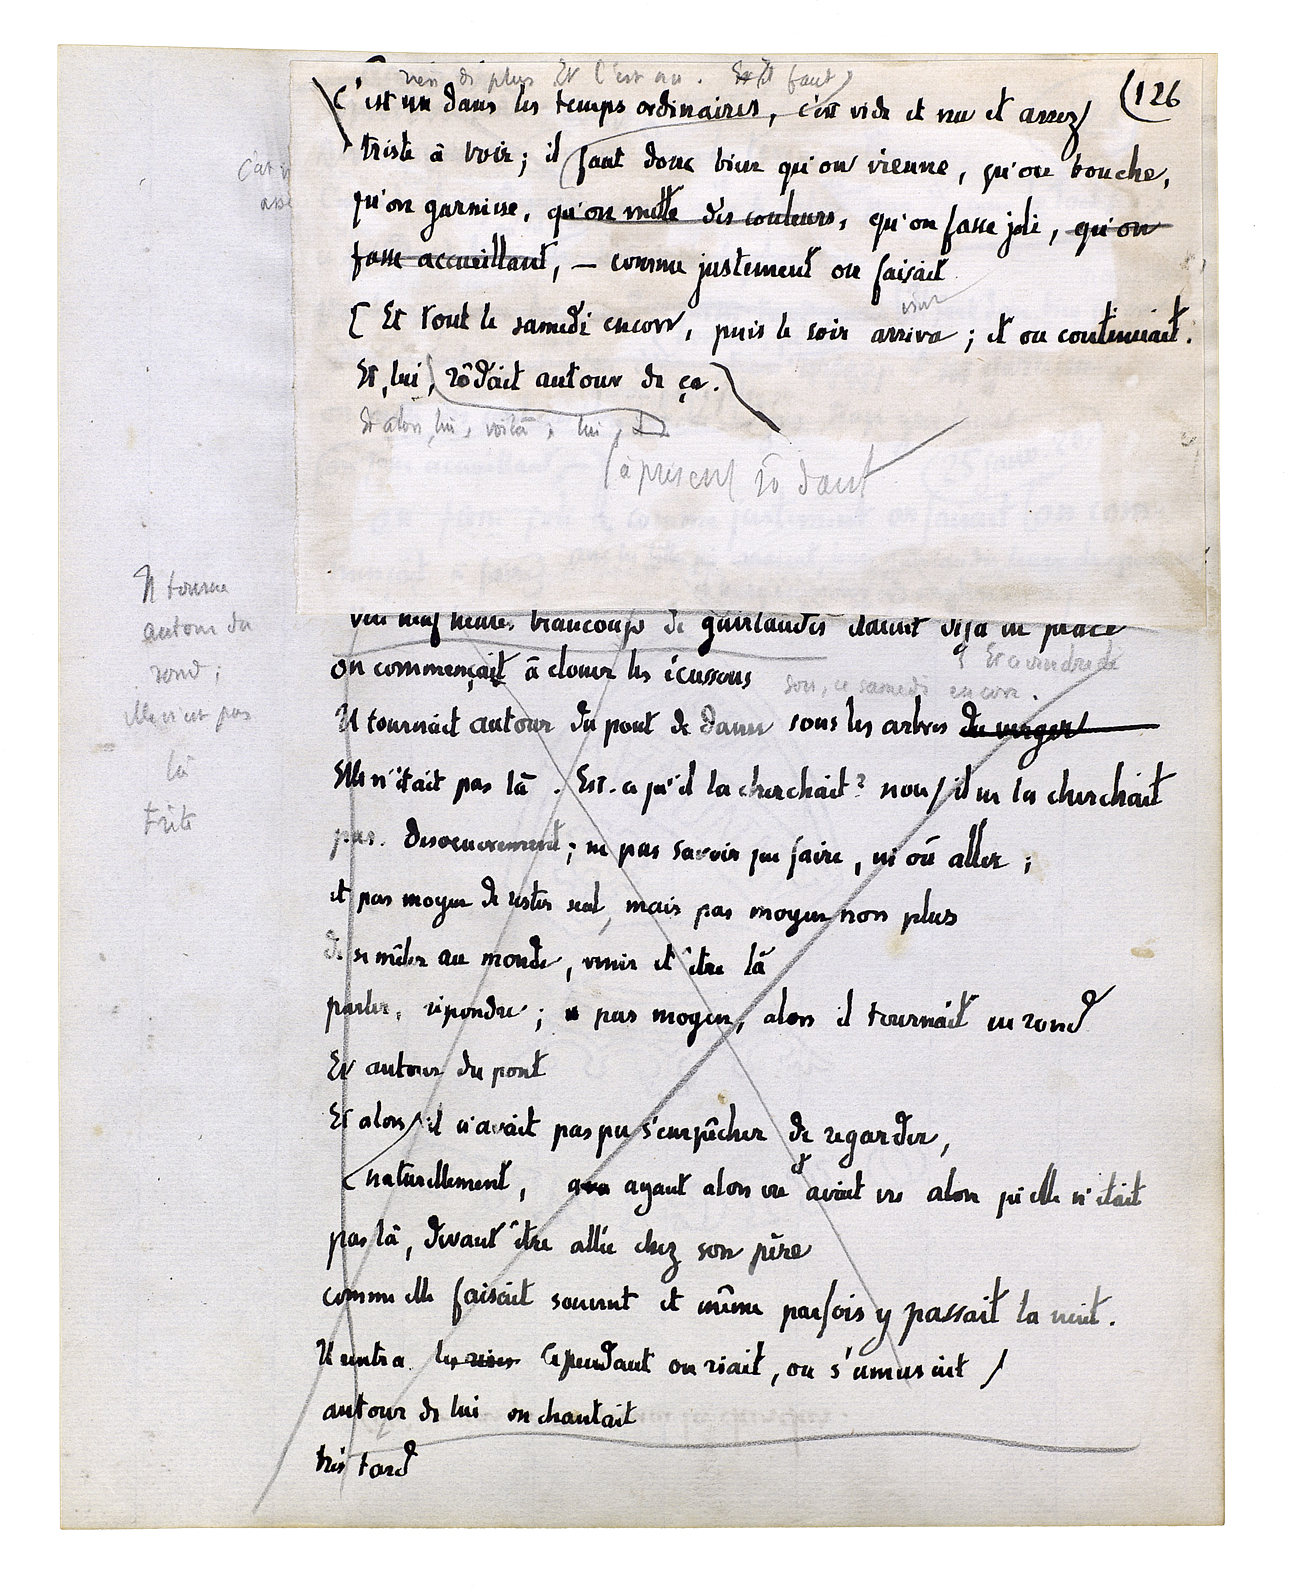 rien de plus Et c'est nu. Et il faut
(126
C'est nu dans les temps ordinaires, c'est vide et nu et assez
triste à voir ; il faut donc bien qu'on vienne, qu'on bouche,
qu'on garnisse, qu'on mette des couleurs, qu'on fasse joli, qu'on
fasse accueillant, – comme justement on faisait
vint
[ Et tout le samedi encore, puis le soir arriva ; et on continuait.
Et, lui, rôdait autour de ça.
Et alors, lui, voilà, lui,
à présent rôdant
Il tourne
autour du
rond ;
elle n'est pas
là
Frite
neuf heures, beaucoup de guirlandes étaient déjà en place
Et ce vendredi
on commençait à clouer les écussons
soir, ce samedi encore.
Il tournait autour du pont de danse sous les arbres du verger
Elle n'était pas là. Est-ce qu'il la cherchait ? non / il ne la cherchait
pas. désoeuvrement ; ne pas savoir que faire, ni où aller ;
et pas moyen de rester seul, mais pas moyen non plus
de se mêler au monde, venir et être là
parler, répondre ; pas moyen, alors il tournait en rond
Et autour du pont
Et alors / il n'avait pas pu s'empêcher de regarder,
naturellement, ayant alors vu et avait vu alors qu'elle n'était
pas là, devant être allée chez son père
comme elle faisait souvent et même parfois y passait la nuit.
Il entra les rires Cependant on riait, on s'amusait /
autour de lui on chantait
très tard